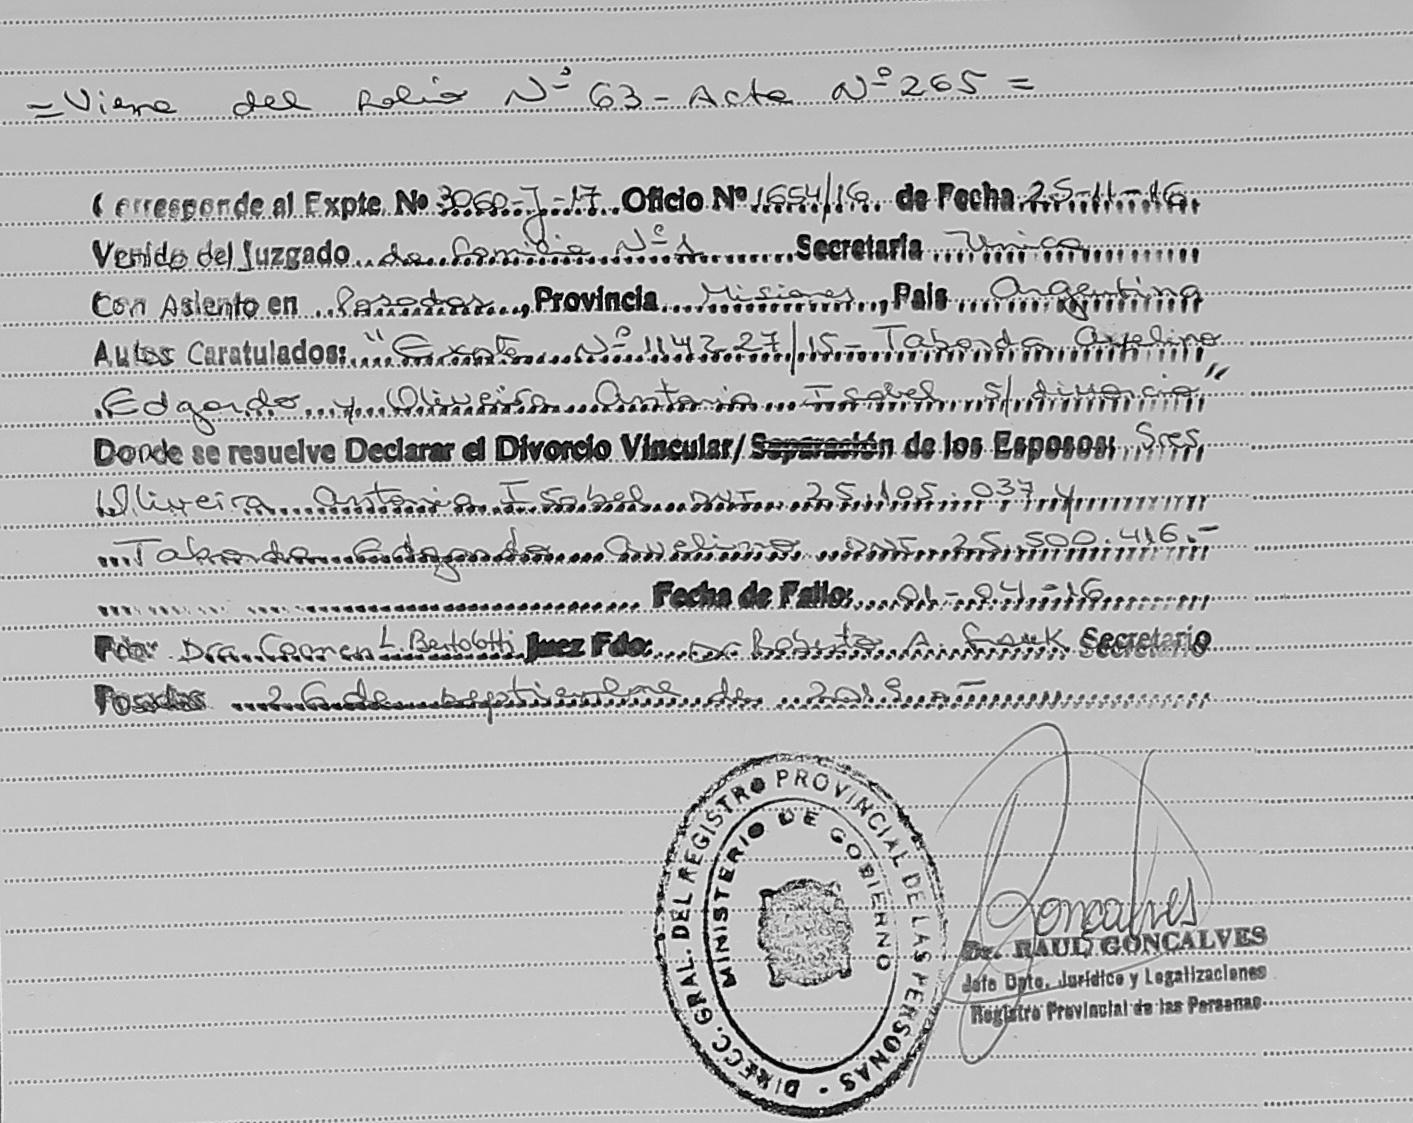 = Viene del folio Nº 63 - Acta Nº 265 =
Corresponde al Expte. Nº 3060-J-17 Oficio Nº 1654/16 de Fecha 25-11-16
Venido del Juzgado de Familia Nº 1 Secretaría Unica
Con Asiento en Posadas, Provincia Misiones, País Argentina
Autos Caratulados: "Expte Nº 114227/15 - Taborda Avelino
Edgardo y Oliveira Antonia Isabel s/ divorcio"
Donde se resuelve Declarar el Divorcio Vincular/Separación de los Esposos: Sres
Oliveira Antonia Isabel DNI 25.105.037 y
Taborda Edgardo Avelino DNI 25.500.416.-
Fecha de Fallo: 01-04-16
Fdo: Dra. Carmen L. Bertolotti Juez Fdo: Dr. Roberto A. Secretario
Posadas 26 de septiembre de 2019.-
DIRECC. GRAL. DEL REGISTRO PROVINCIAL DE LAS PERSONAS -
MINISTERIO DE GOBIERNO
Goncalves
Dr. RAUL GONCALVES
Jefe Dpto. Jurídico y Legalizaciones
Registro Provincial de las Personas